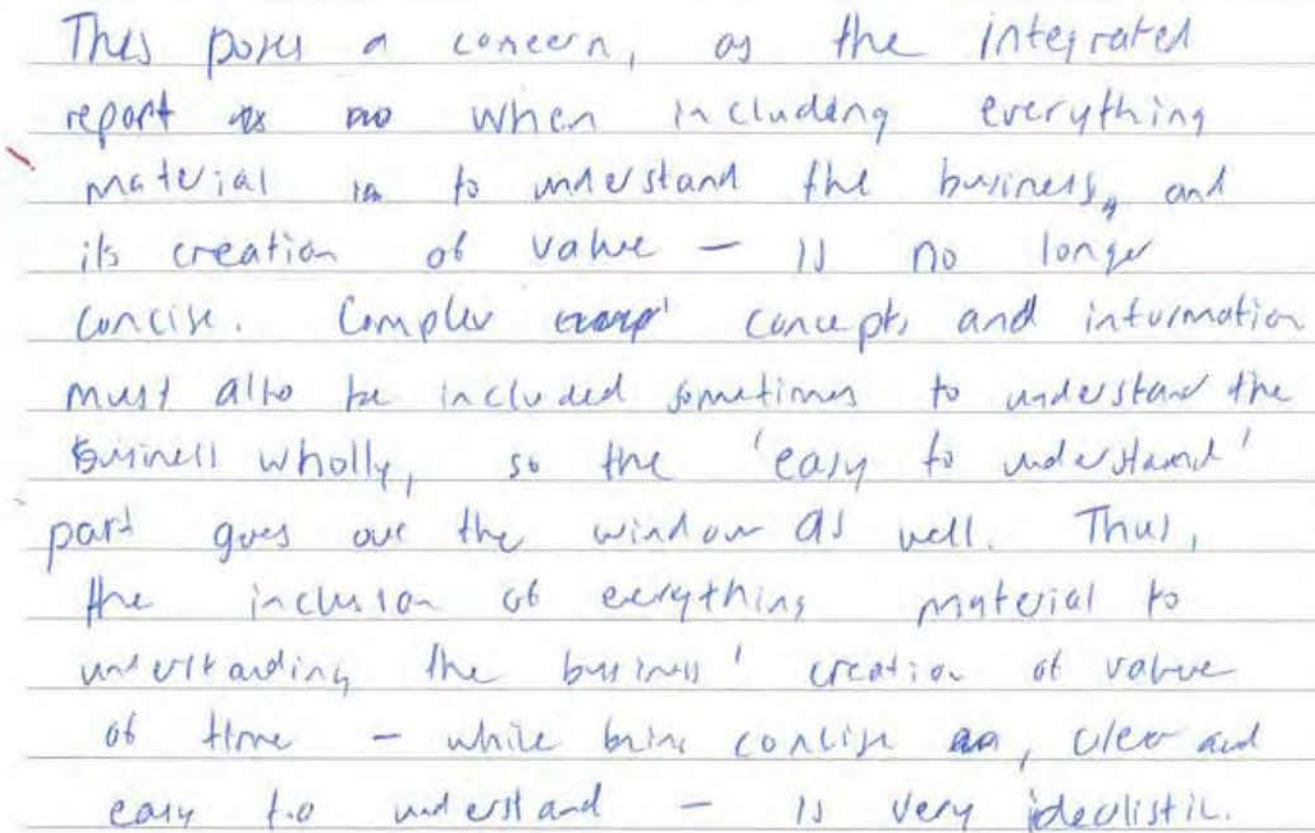 This poses a concern, as the integrated
report when including everything
material to understand the business, and
its creation of value – is no longer
concise. Complex concepts and information
must also be included sometimes to understand the
business wholly, so the 'easy to understand'
part goes out the window as well. Thus,
the inclusion of everything material to
understanding the business' creation of value
of time – while being concise, clear and
easy to understand – is very idealistic.